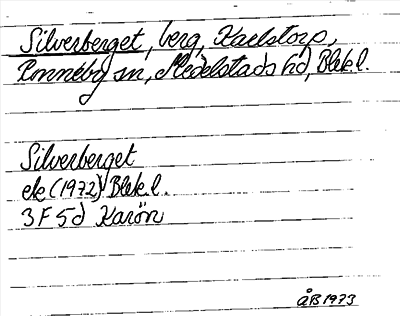 Silverberget, berg, Karlstorp,
Ronneby sn, Medelstads hd, Blek.l.
Silverberget
ek (1972) Blek.l.
3F5d Karön
ÅB 1973